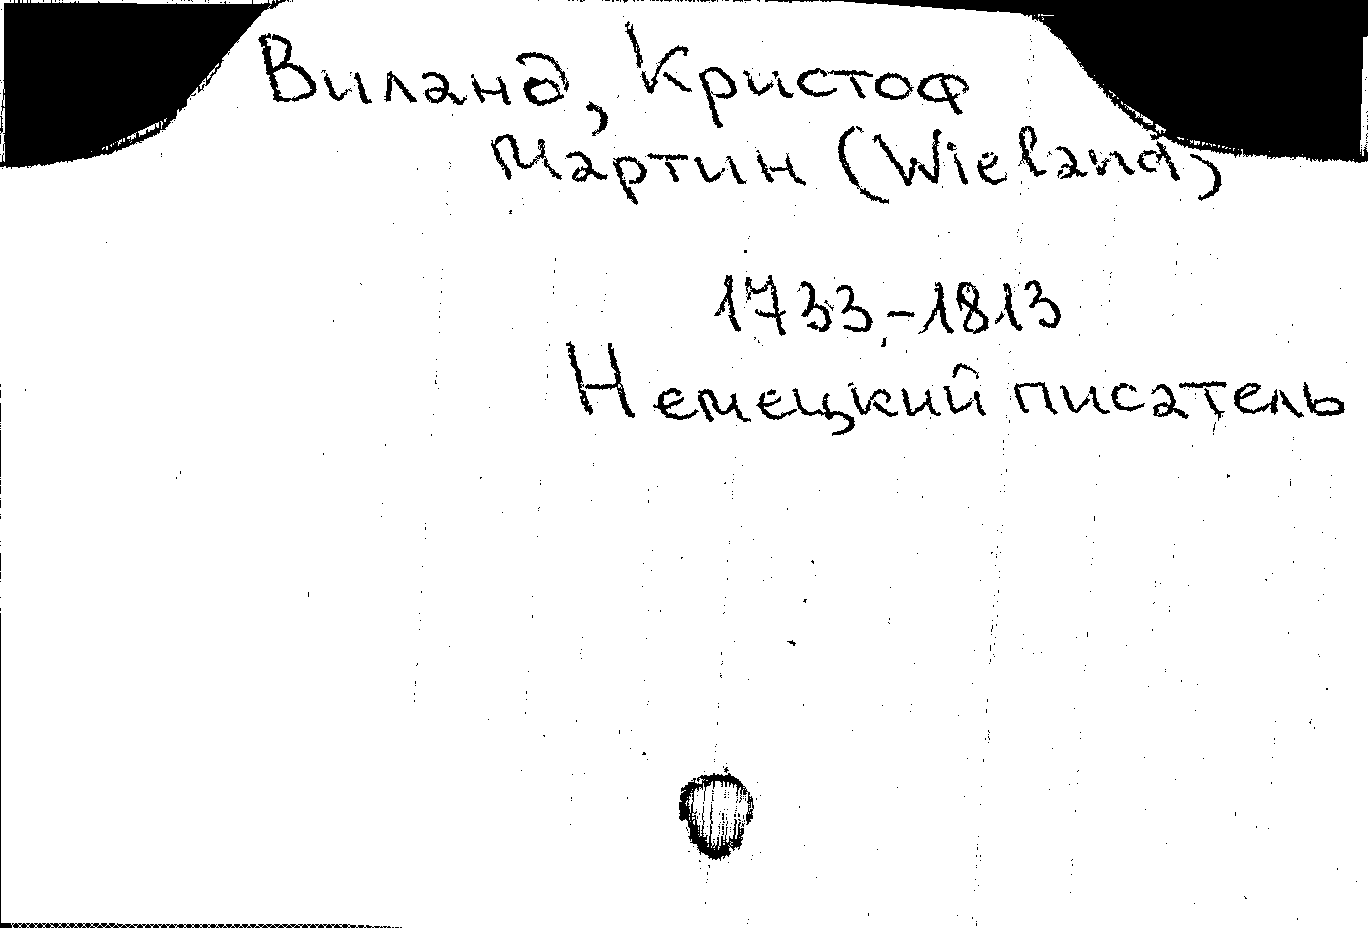 Виланд, Кристоф
Мартин (Wieland)
1733-1813
Немецкий писатель